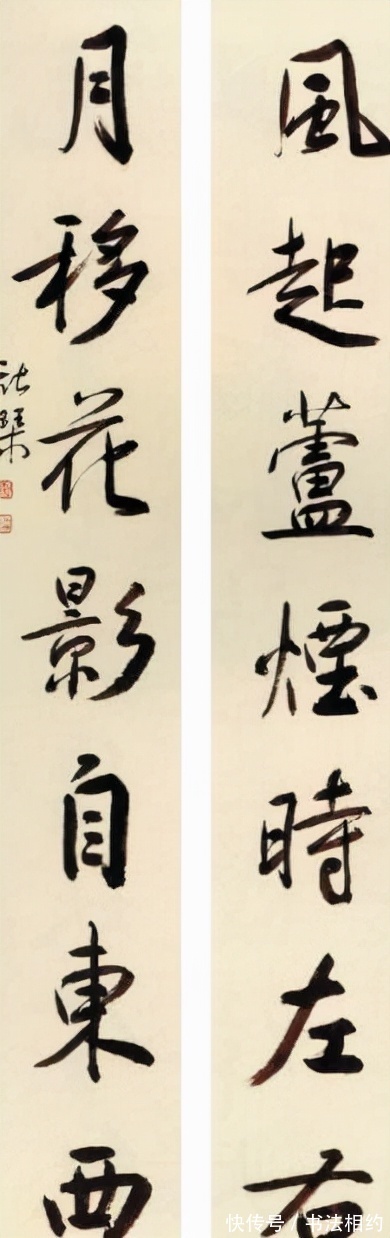 風起蘆煙時左右
月移花影自東西
快传号/书法相约